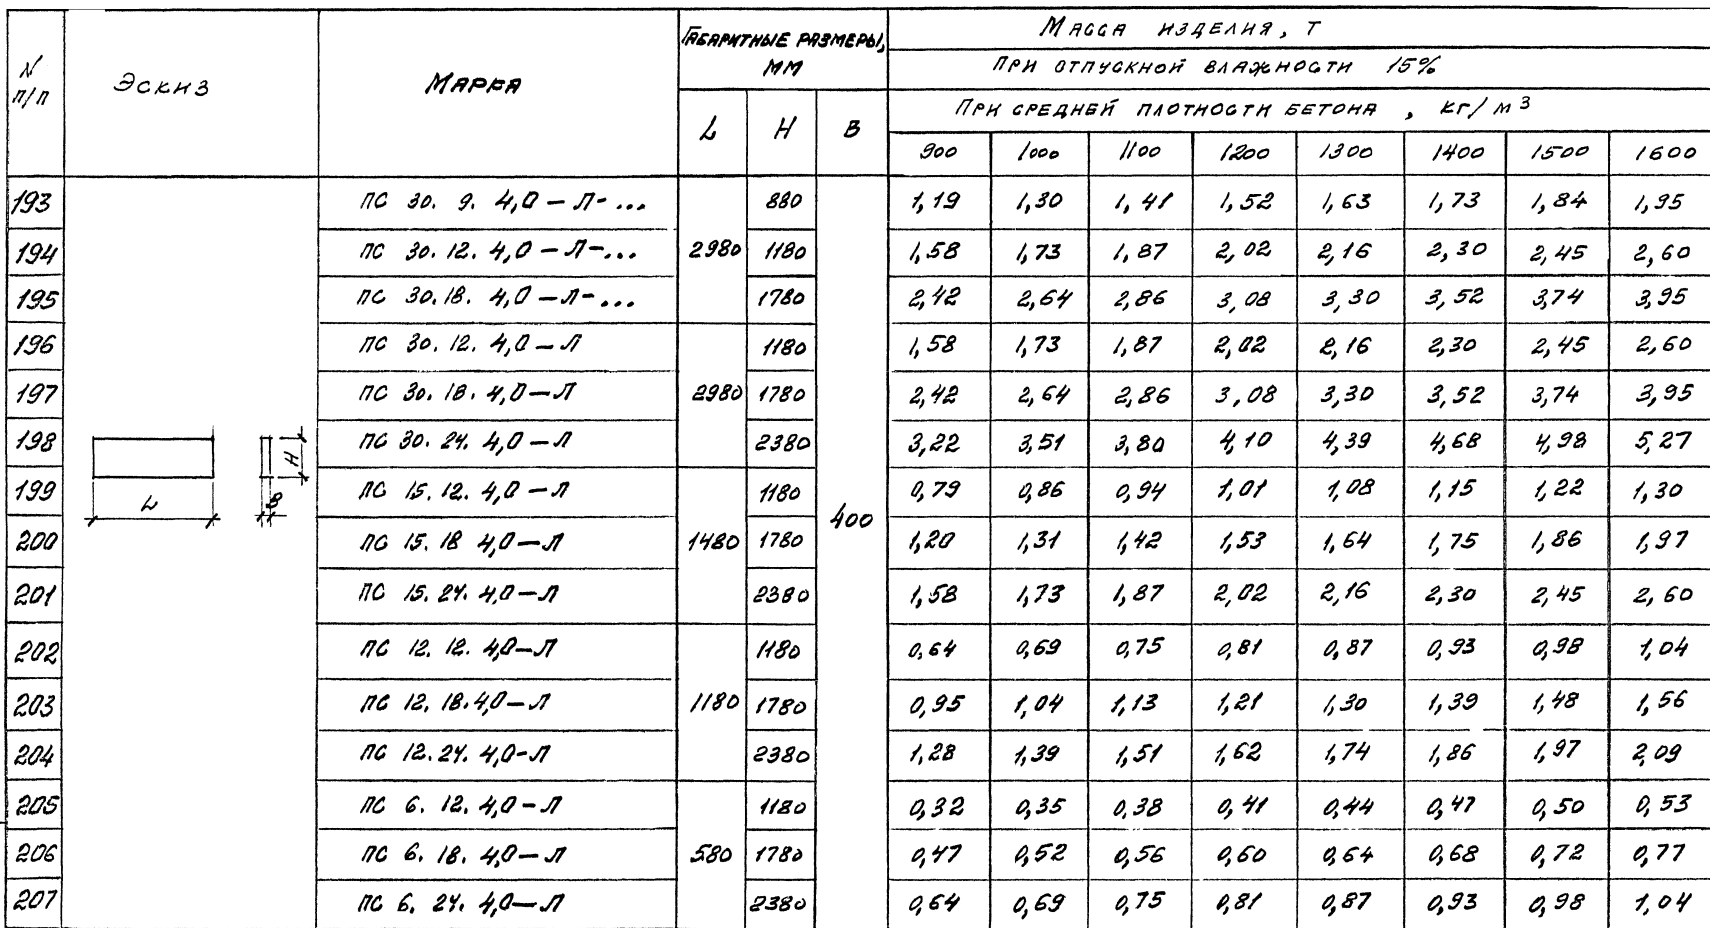 N п/п Эскиз Марка Габаритные размеры, мм Масса изделия, т
При отпускной влажности 15%
При средней плотности бетона, кг/м³
L H B 900 1000 1100 1200 1300 1400 1500 1600
193 ПС 30. 9. 4,0 – Л-... 880 1,19 1,30 1,41 1,52 1,63 1,73 1,84 1,95
194 ПС 30. 12. 4,0 – Л-... 2980 1180 1,58 1,73 1,87 2,02 2,16 2,30 2,45 2,60
195 ПС 30. 18. 4,0 – Л-... 1780 2,42 2,64 2,86 3,08 3,30 3,52 3,74 3,95
196 ПС 30. 12. 4,0 – Л 1180 1,58 1,73 1,87 2,02 2,16 2,30 2,45 2,60
197 ПС 30. 18. 4,0 – Л 2980 1780 2,42 2,64 2,86 3,08 3,30 3,52 3,74 3,95
198 ПС 30. 24. 4,0 – Л 2380 3,22 3,51 3,80 4,10 4,39 4,68 4,98 5,27
H
199 ПС 15. 12. 4,0 – Л 1180 0,79 0,86 0,94 1,01 1,08 1,15 1,22 1,30
L B 400
200 ПС 15. 18 4,0 – Л 1480 1780 1,20 1,31 1,42 1,53 1,64 1,75 1,86 1,97
201 ПС 15. 24. 4,0 – Л 2380 1,58 1,73 1,87 2,02 2,16 2,30 2,45 2,60
202 ПС 12. 12. 4,0 – Л 1180 0,64 0,69 0,75 0,81 0,87 0,93 0,98 1,04
203 ПС 12. 18. 4,0 – Л 1180 1780 0,95 1,04 1,13 1,21 1,30 1,39 1,48 1,56
204 ПС 12. 24. 4,0 – Л 2380 1,28 1,39 1,51 1,62 1,74 1,86 1,97 2,09
205 ПС 6. 12. 4,0 – Л 1180 0,32 0,35 0,38 0,41 0,44 0,47 0,50 0,53
206 ПС 6. 18. 4,0 – Л 580 1780 0,47 0,52 0,56 0,60 0,64 0,68 0,72 0,77
207 ПС 6. 24. 4,0 – Л 2380 0,64 0,69 0,75 0,81 0,87 0,93 0,98 1,04